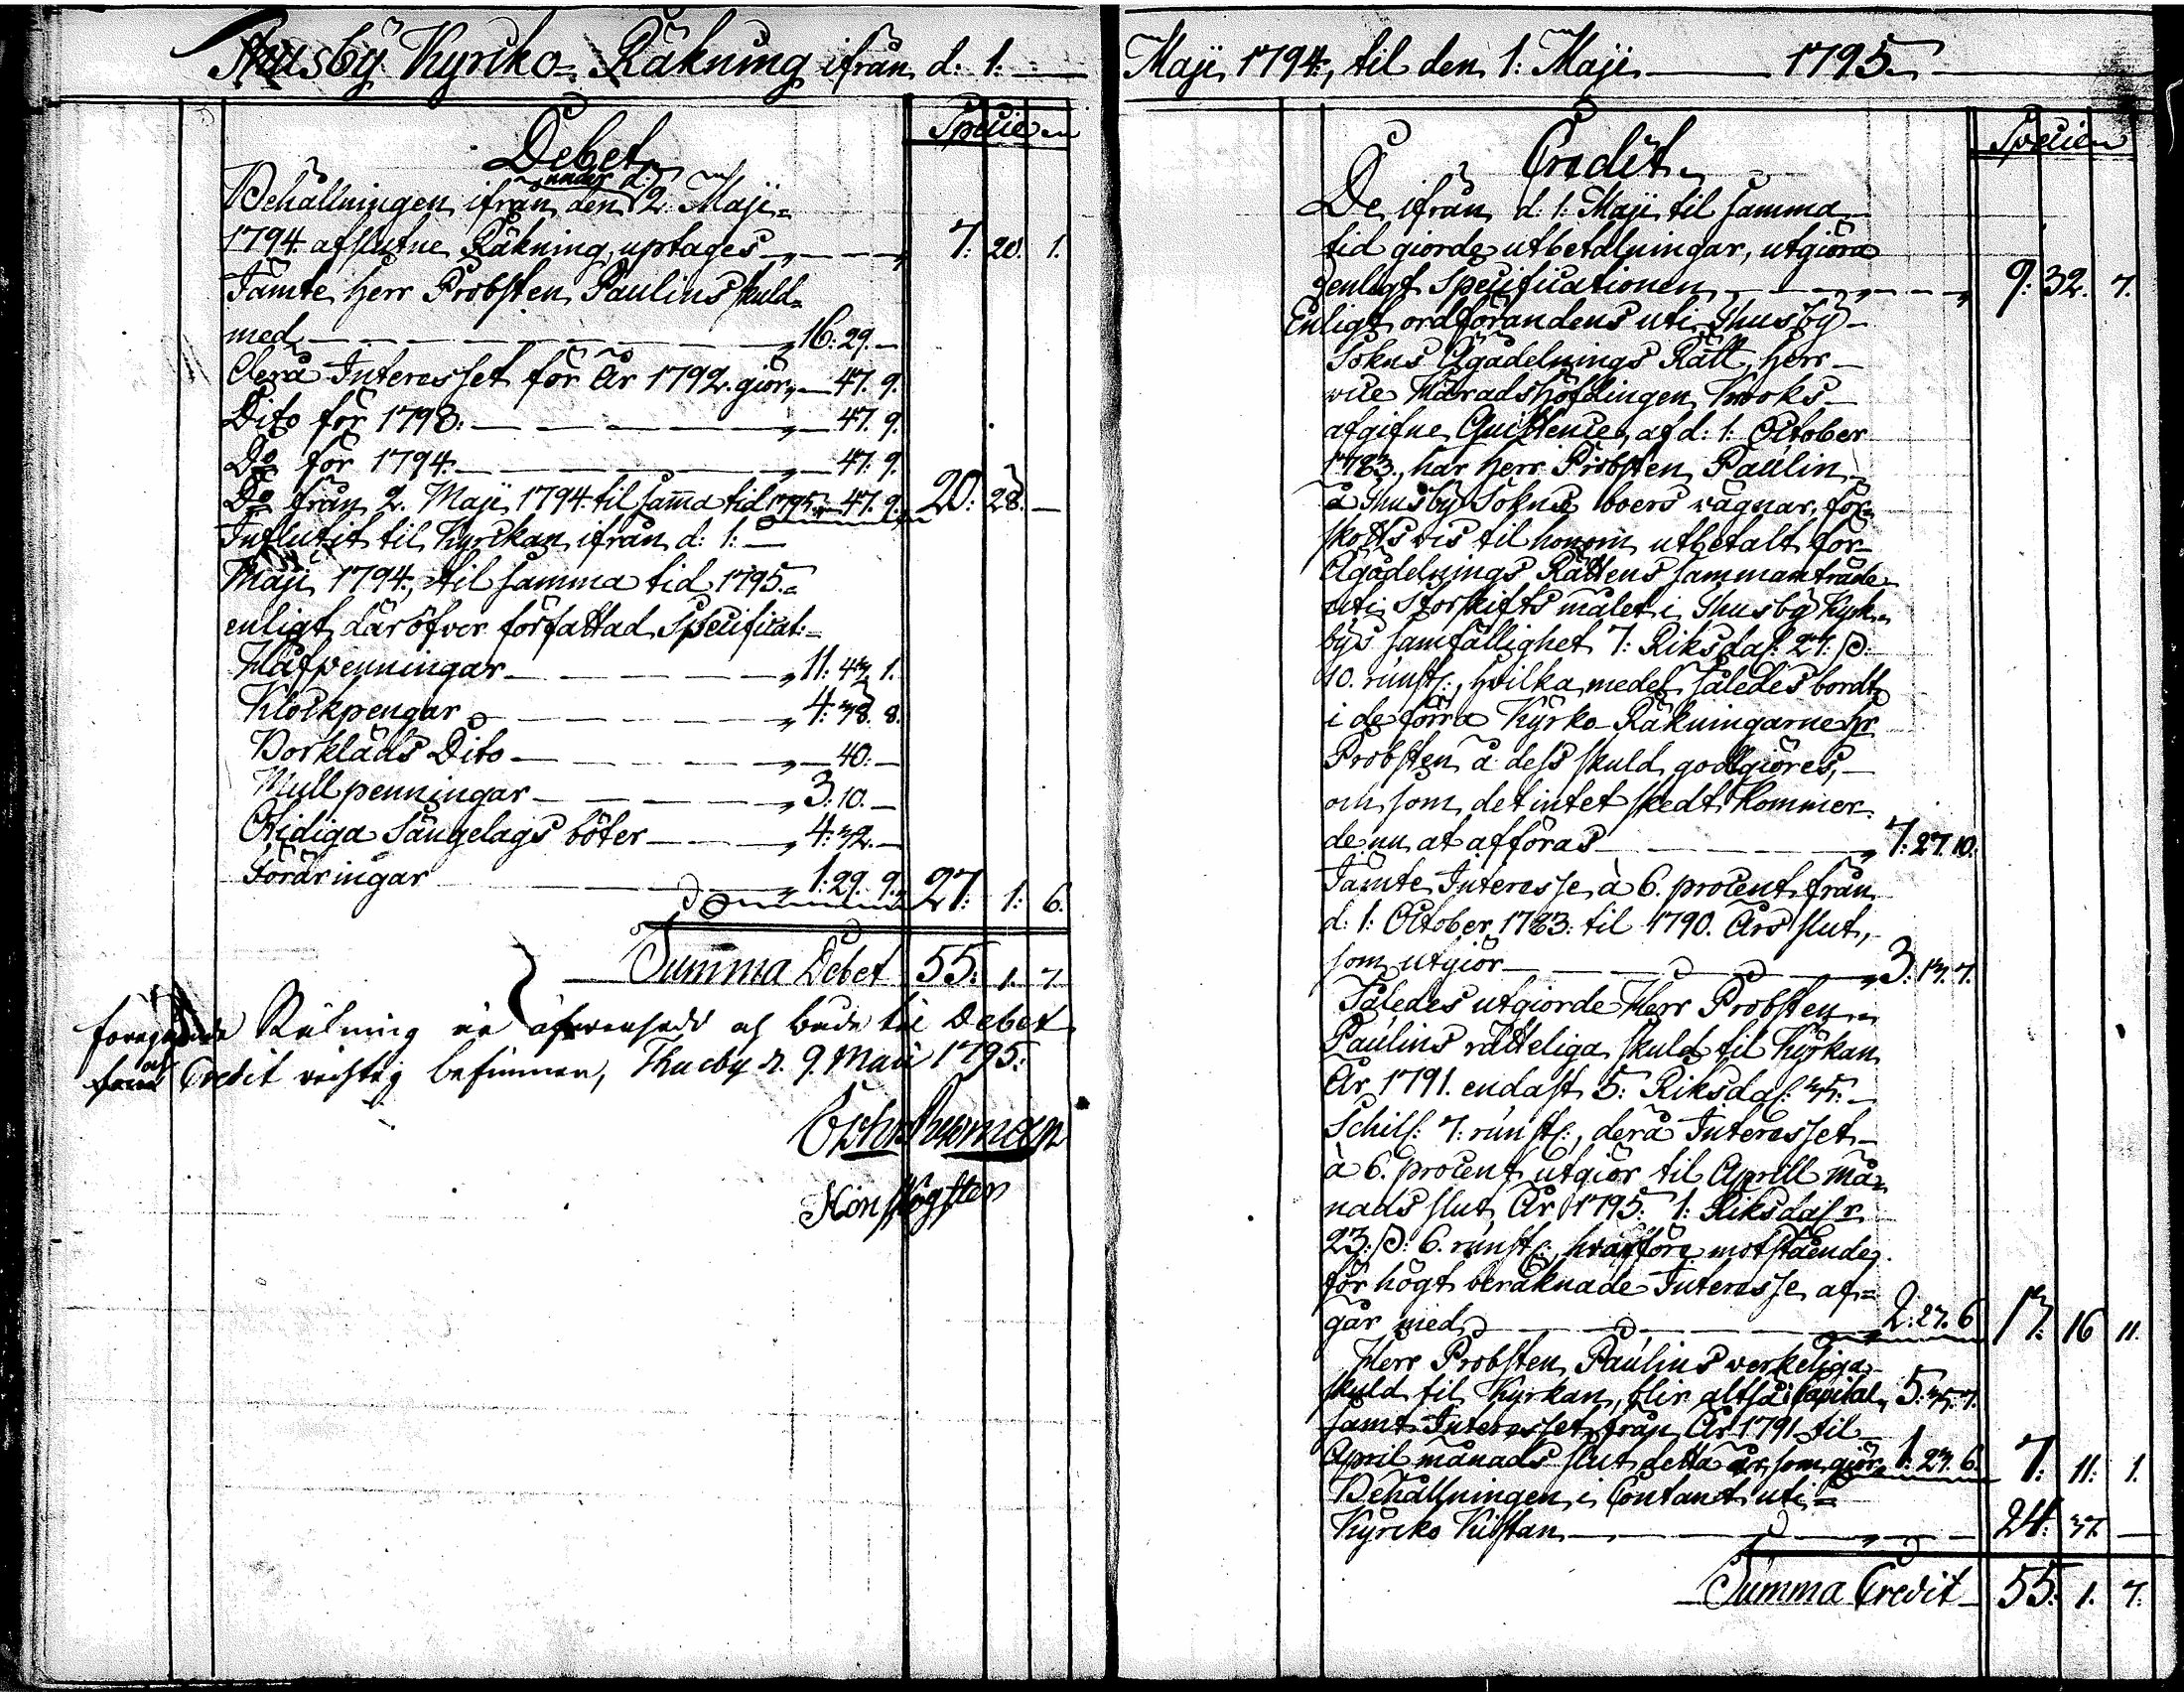 Husby Kyrko-Räkning ifrån d: 1:
Debet
Specie
Behållningen ifrån den under d: 2. Maji
1794. afslutne Räkning, uptages 7: 20. 1.
Jämte Herr Probsten Paulins skuld
med 16: 29.
Derå Interesset för År 1792. giör 47. 9.
Dito för 1793. 47. 9.
Do för 1794. 47. 9.
Do från 2. Maji 1794. til samma tid 1795. 47. 9. 20: 28.
Influtit til Kyrckan ifrån d: 1:
Maji 1794, til samma tid 1795.
enligt däröfver författad Specificat:
Håfpenningar 11: 43. 1.
Klockpengar 4: 38. 8.
Borkläds Dito 40.
Mullpenningar 3: 10.
Otidiga Sängelags böter 4: 32.
Föräringar 1: 29. 9. 27: 1: 6.
Summa Debet 55: 1. 7
Räkning är öfwersedd och både til Debet
och Credit richtig befunnen, Husby d. 9 Maii 1795.
Maji 1794, til den 1: Maji 1795.
Credit
Specie
De ifrån d: 1: Maji til samma
tid giorde utbetalningar, utgiöra
enligt Specificationen 9: 32. 7.
Enligt ordförandens uti Husby
Sokns Ägodelnings Rätt, Herr
vice Häradshöfdingen Krooks
afgifne Quittence, af d: 1: October
1783, har Herr Probsten Paulin
å Husby Sokne boers wägnar, för-
skotts vis til honom utbetalt för
Ägodelnings Rättens sammanträde
uti Storskifts målet i Husby Kyrk-
bys samfällighet 7: Riksdal: 27: ß:
10. runst:, hvilka medel således bordt
i de förra Kyrko-Räkningarne Hr
Probsten å dess skuld godtgiöres,
och som det intet skedt, kommer
de nu at afföras 7: 27. 10.
Jämte Interesse à 6. procent från
d: 1: October 1783. til 1790. Års slut,
som utgiör 3: 13. 7.
Således utgiorde Herr Probsten
Paulins rätteliga skuld til Kyrkan
År 1791. endast 5: Riksdal: 35.
Schill: 7: runst:, derå Interesset
à 6. procent utgiör til Aprill må-
nads slut År 1795. 1: Riksdal r
23: ß: 6. runst:, hvarföre motstående
för högt beräknade Interesse af-
går med 2: 23. 6 13: 16 11.
Herr Probsten Paulins verkeliga
skuld til Kyrkan, blir altså: Capital 5: 35. 7.
samt Interesset från År 1791 til
April månads slut detta år, som giör 1: 23. 6. 7: 11: 1.
Behållningen i Contant uti
Kyrcko Kistan 24: 37.
Summa Credit 55: 1. 7: